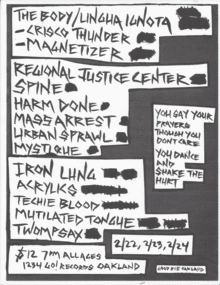 THE BODY/LINGUA IGNOTA
-CRISCO THUNDER
-MAGNETIZER
REGIONAL JUSTICE CENTER
SPINE
HARM DONE
MASS ARREST
URBAN SPRAWL
MYSTIQUE
YOU SAY YOUR
PRAYERS
THOUGH YOU
DON'T CARE
YOU DANCE
AND
SHAKE THE
HURT
IRON LUNG
ACRYLICS
TECHIE BLOOD
MUTILATED TONGUE
TWOMPSAX
2/22, 2/23, 2/24
$12 7PM ALL AGES
1234 GO! RECORDS OAKLAND
OAKLAND